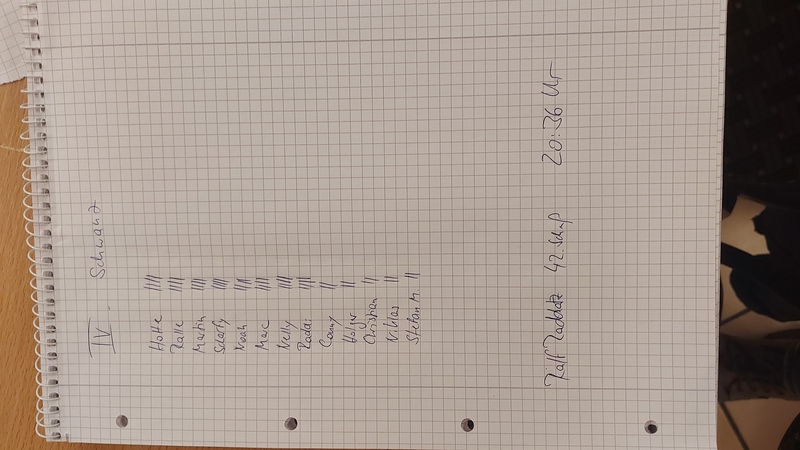 IV. Schwanz
Hotte ||||
Ralle ||||
Martin ||||
Scharfy ||||
Noah ||||
Mac ||||
Nelly ||||
Radai ||||
Conny ||
Holger ||
Christian ||
Niklas ||
Stefan M ||
Ralf Raddatz 42. Schuß 20:36 Uhr